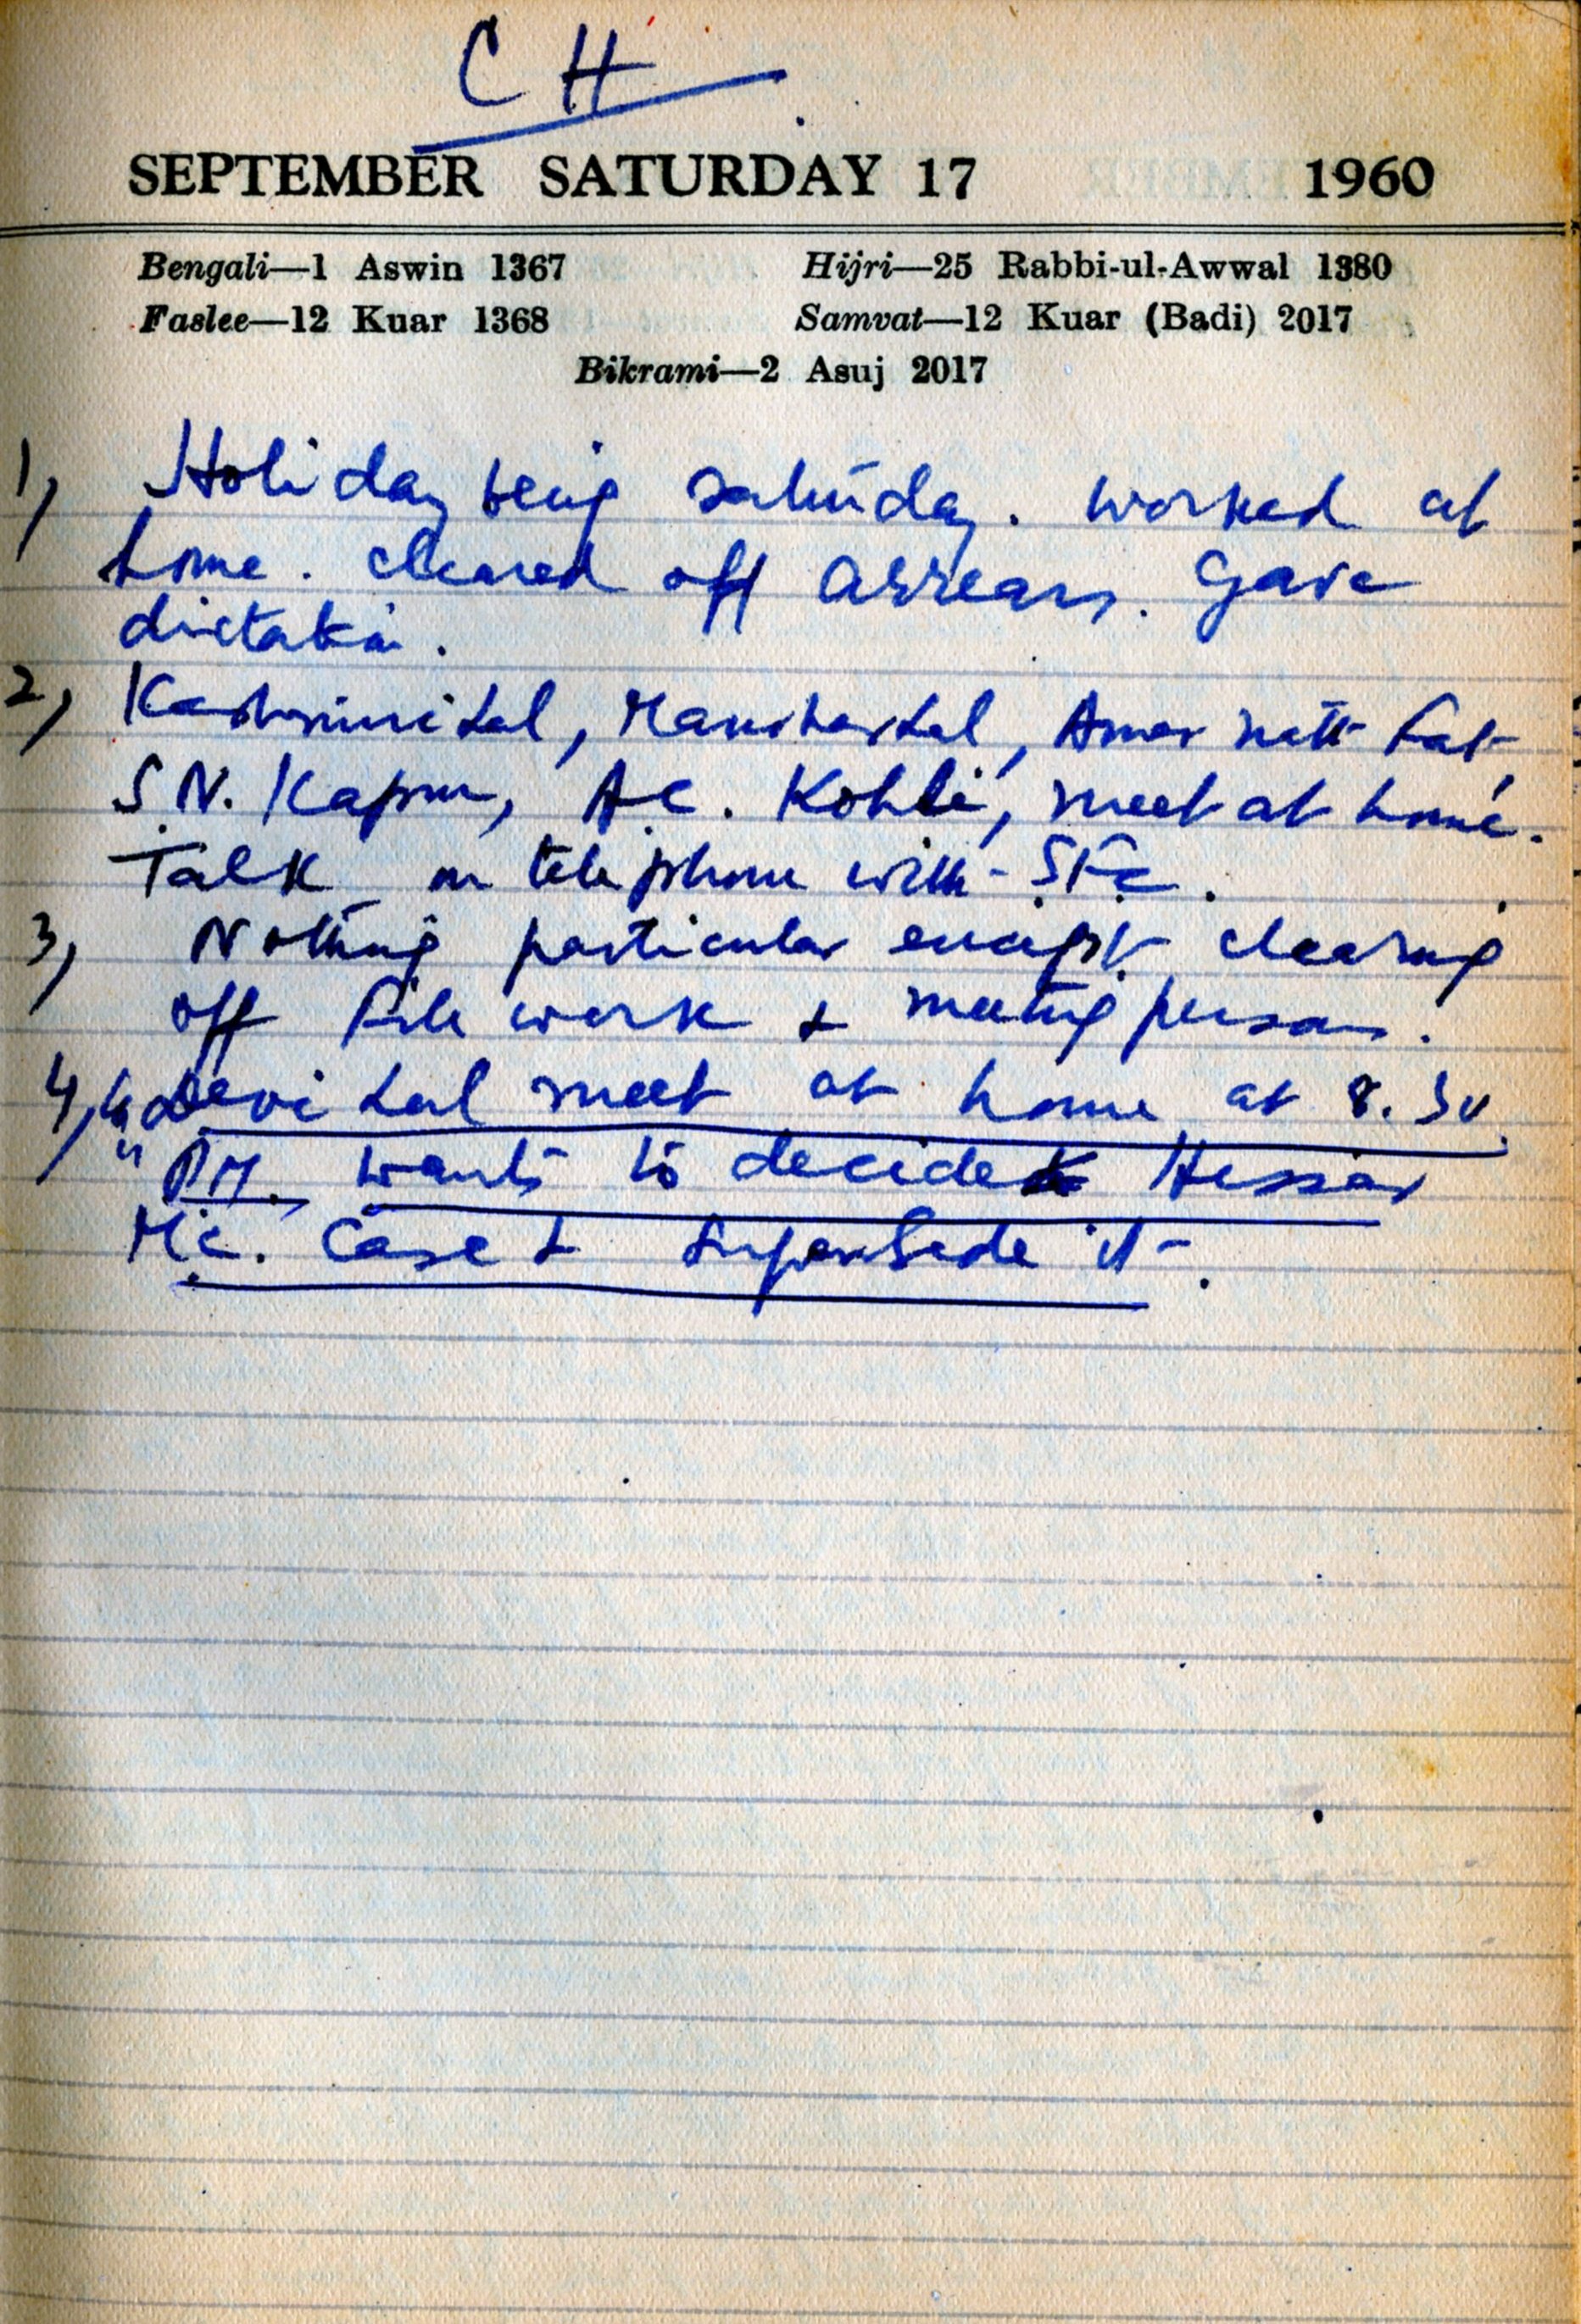 C H
SEPTEMBER SATURDAY 17 1960
Bengali—1 Aswin 1367 Hijri—25 Rabbi-ul-Awwal 1380
Faslee—12 Kuar 1368 Samvat—12 Kuar (Badi) 2017
Bikrami—2 Asuj 2017
1, Holiday being saturday. worked at
home. cleared off arrears. Gave
dictation.
2, Kashmiri Lal, Manohar Lal, Amar nath
S.N. Kapur, A.C. Kohli, meet at home.
Talk on telephone with
3, Nothing particular except clearing
off file work & meeting persons.
4, Devi Lal meet at home at 8.30
P.M. wants to decide Hissar
M.C. Case & Supersede it.